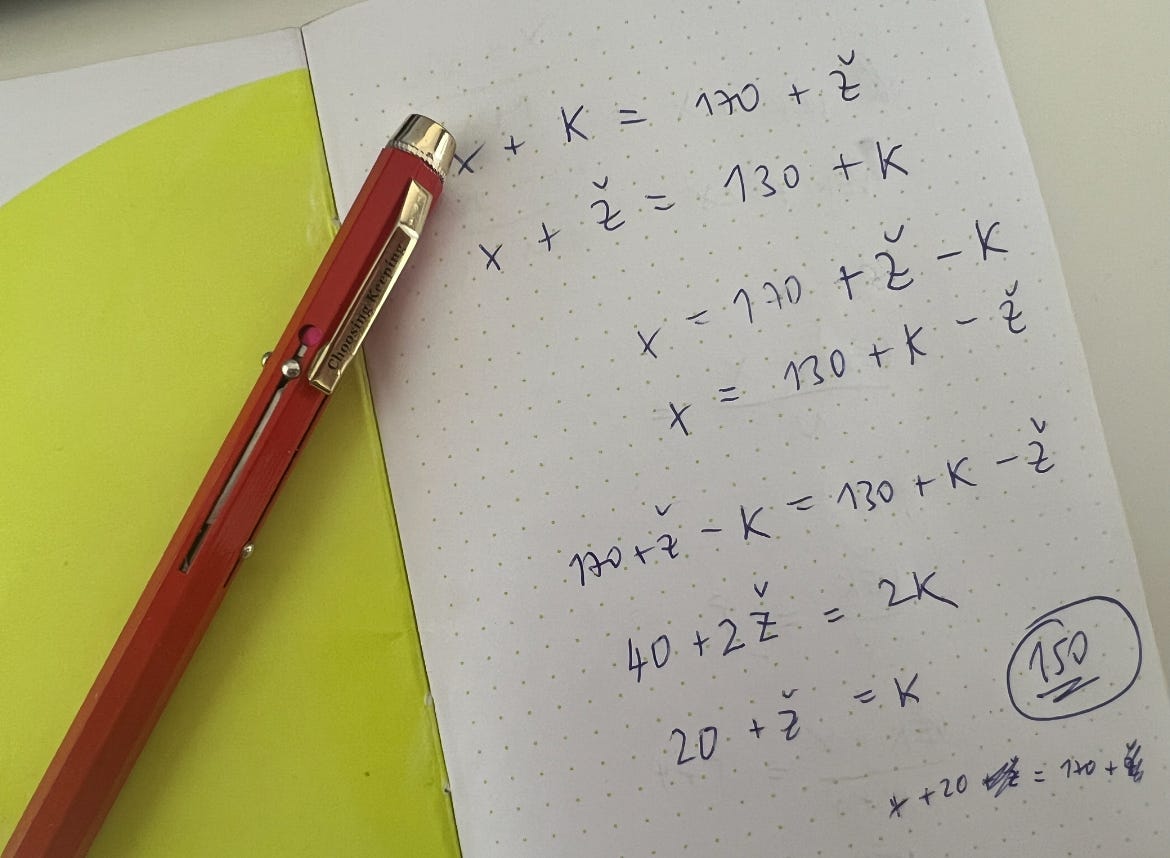 x + K = 170 + ž
x + ž = 130 + K
x = 170 + ž - K
x = 130 + K - ž
170 + ž - K = 130 + K - ž
40 + 2ž = 2K
20 + ž = K
150
x + 20 = 170 +
Choosing Keeping